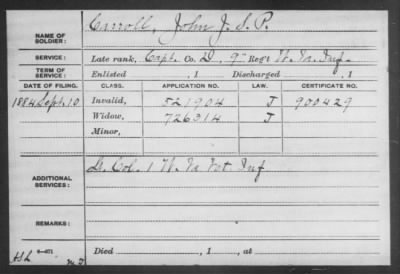 Carroll, John J. S. P.
NAME OF SOLDIER:
SERVICE: Late rank, Capt. Co. D, 9" Reg't W. Va. Inf.
TERM OF SERVICE: Enlisted , 1 Discharged , 1
DATE OF FILING. CLASS. APPLICATION NO. LAW. CERTIFICATE NO.
1884 Sept. 10 Invalid, 521904 J 900429
Widow, 726314 J
Minor,
ADDITIONAL SERVICES: Lt. Col. 1 W. Va. Vet. Inf
REMARKS:
6—071
Died , 1 , at